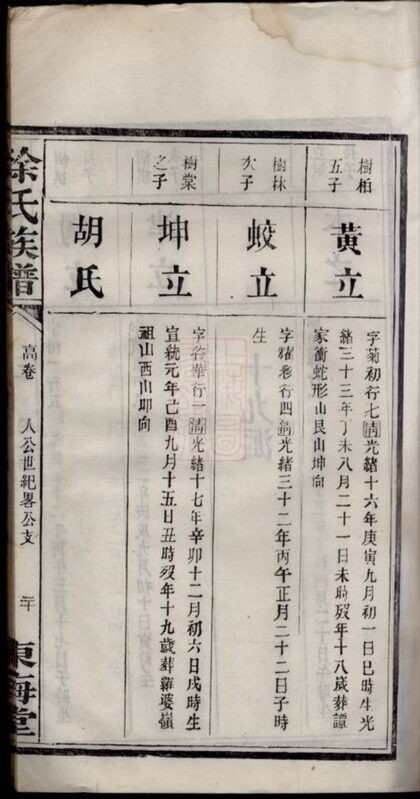 樹柏
五子
黃立
字菊初行七清光緒十六年庚寅九月初一日巳時生光
緒三十三年丁未八月二十一日未時歿年十八歲葬譚
家衝蛇形山艮山坤向
樹林
次子
蛟立
字耀 行四清光緒三十二年丙午正月二十二日子時
生
樹棠
之子
坤立
字 華行一清光緒十七年辛卯十二月初六日戌時生
宣統元年己酉九月十五日丑時歿年十九歲葬羅婆嶺
祖山酉山卯向
胡氏
徐氏族譜
高卷
人公世紀畧公支
二十
東海堂